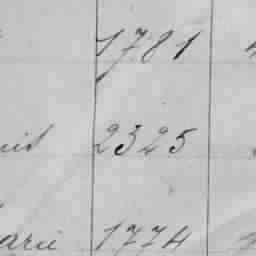 1781
2325
arie 1774